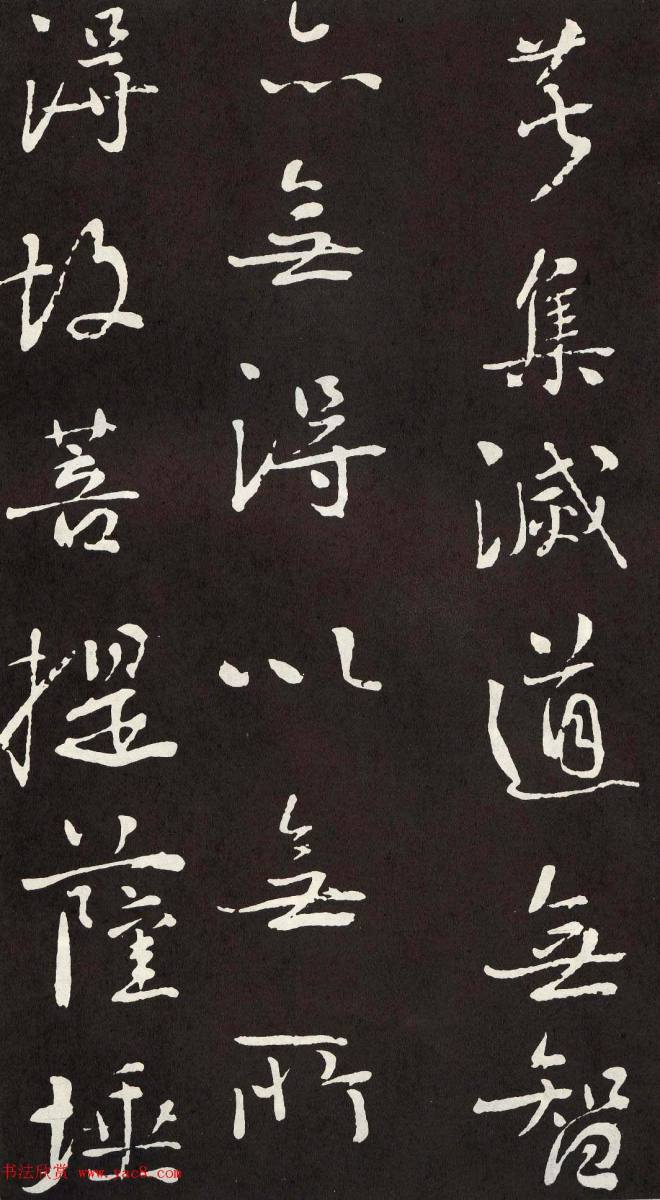 苦集滅道無智
亦無得以無所
得故菩提薩埵
书法欣赏 www.yac8.com